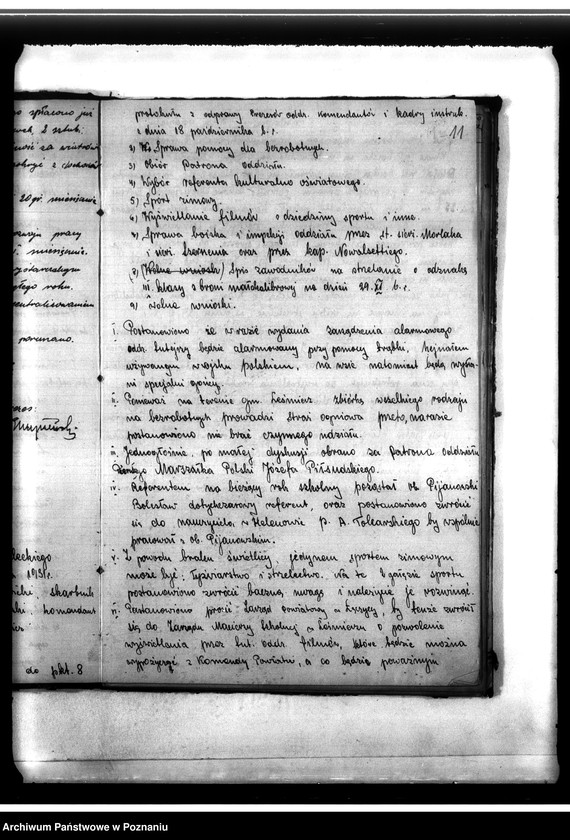 o spłacono już
2 sztuk.
20 gr. miesięcznie
pracy
miesięcznie.
roku.
porównano.
1931 r.
skarbnik
komendant
do pkt. 8
11
protokułu z odprawy Prezesów oddz. komendantów i kadry instruk.
z dnia 18 października b.r.
2) Sprawa pomocy dla bezrobotnych.
3) Obiór Patrona oddziału.
4) Wybór referenta kulturalno oświatowego.
5) Sport zimowy.
6) Wyświetlanie filmów o dziedziny sportu i inne.
7) Sprawa boiska i inspekcji oddziału przez st. sierż. Morlaka
i sierż. oraz przez kap. Nowalsettiego.
8) Wolne wnioski Spis zawodników na strzelanie o odznakę
III. klasy z broni małokalibrowej na dzień 29. XI b.r.
9) Wolne wnioski.
I. Postanowiono że w razie wydania zarządzenia alarmowego
oddz. tutejszy będzie alarmowany przy pomocy trąbki, hejnałem
używanym w wojsku polskiem, na wsie natomiast będą
ni specjalni gońcy.
II. Ponieważ na terenie gm. Leśmierz zbiórkę wszelkiego rodzaju
na bezrobotnych prowadzi straż ogniowa przeto, narazie
postanowiono nie brać czynnego udziału.
III. Jednogłośnie, po małej dyskusji obrano za Patrona oddziału
Marszałka Polski Józefa Piłsudskiego.
IV. Referentem na bieżący rok szkolny pozostał ob. Pijanowski
Bolesław dotychczasowy referent, oraz postanowiono zwrócić
się do nauczyciela w Helenowie p. A. Tolearskiego by wspólnie
pracował z ob. Pijanowskim.
V. Z powodu braku świetlicy, jedynem sportem zimowym
może być: łyżwiarstwo i strzelectwo. Na te 2 gałęzie sportu
postanowiono zwrócić baczną uwagę i należycie je rozwinąć.
VI. Postanowiono prosić Zarząd powiatowy w Łęczycy, by tenże zwrócił
się do Zarządu Macierzy Szkolnej w Leśmierzu o pozwolenie
wyświetlania przez tut. oddz. filmów, które będzie można
wypożyczyć z Komendy Powiatu, a co będzie poważnym
Archiwum Państwowe w Poznaniu